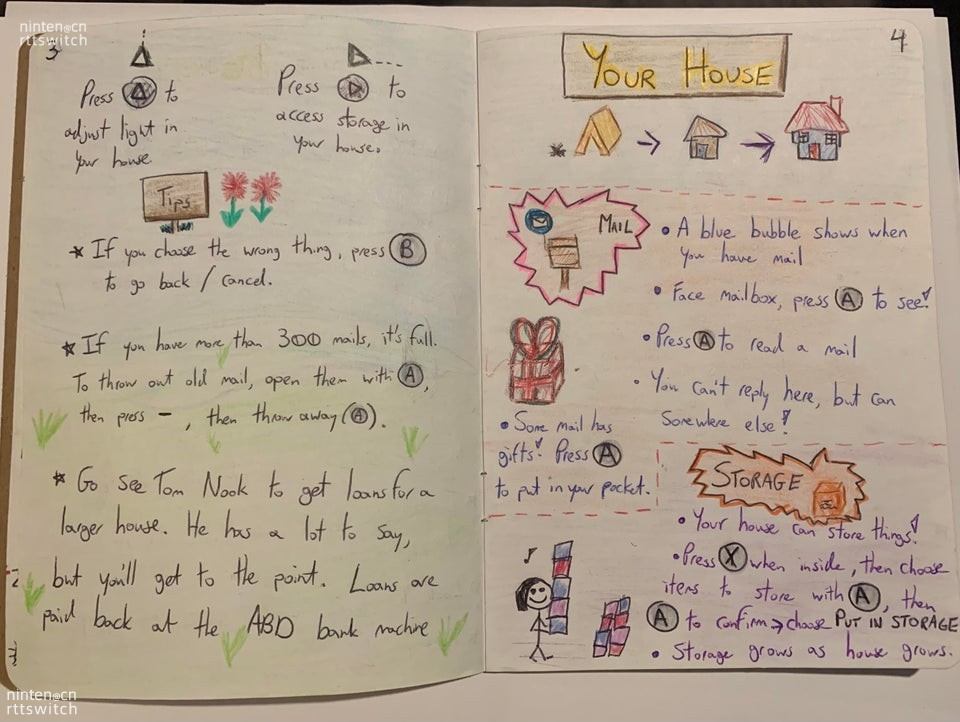 ninten☺cn
rttswitch
3
Press △ to
adjust light in
your house.
Press ▷ to
access storage in
your house.
Tips
* If you choose the wrong thing, press B
to go back / cancel.
* If you have more than 300 mails, it's full.
To throw out old mail, open them with A,
then press -, then throw away (A).
* Go see Tom Nook to get loans for a
larger house. He has a lot to say,
but you'll get to the point. Loans are
paid back at the ABD bank machine
4
YOUR HOUSE
* → →
MAIL
• A blue bubble shows when
you have mail
• Face mailbox, press A to see!
• Press A to read a mail
• You can't reply here, but can
somewere else!
• Some mail has
gifts! Press A
to put in your pocket.
STORAGE
• Your house can store things!
• Press X when inside, then choose
items to store with A, then
A to confirm → choose PUT IN STORAGE
• Storage grows as house grows.
ninten☺cn
rttswitch